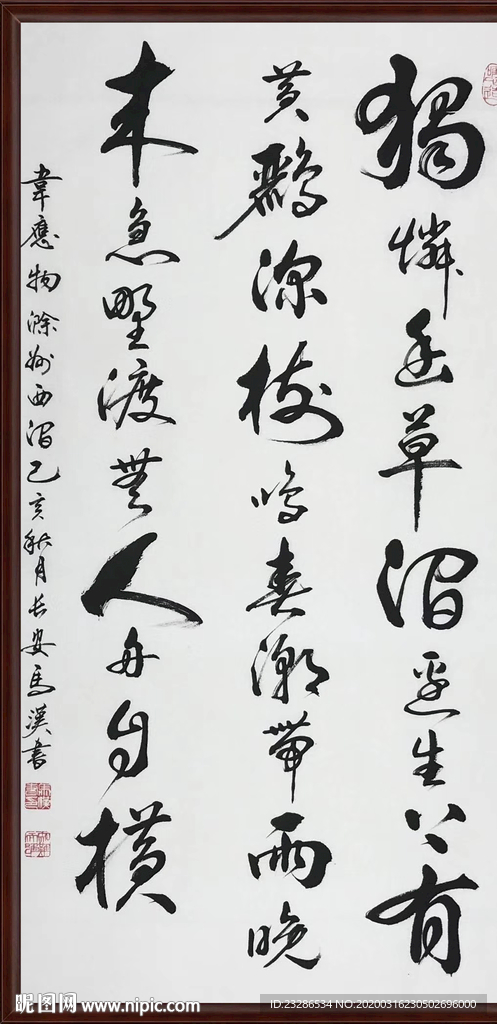 獨憐幽草澗邊生上有
黃鸝深樹鳴春潮帶雨晚
来急野渡無人舟自橫
韋應物滁州西澗己亥秋月長安馬漢書
昵图网 www.nipic.com
ID:23286534 NO:20200316230502696000